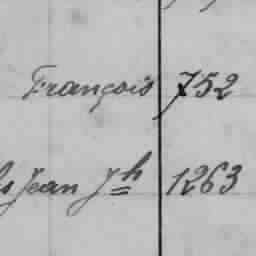 François 752
Jean Jh 1263